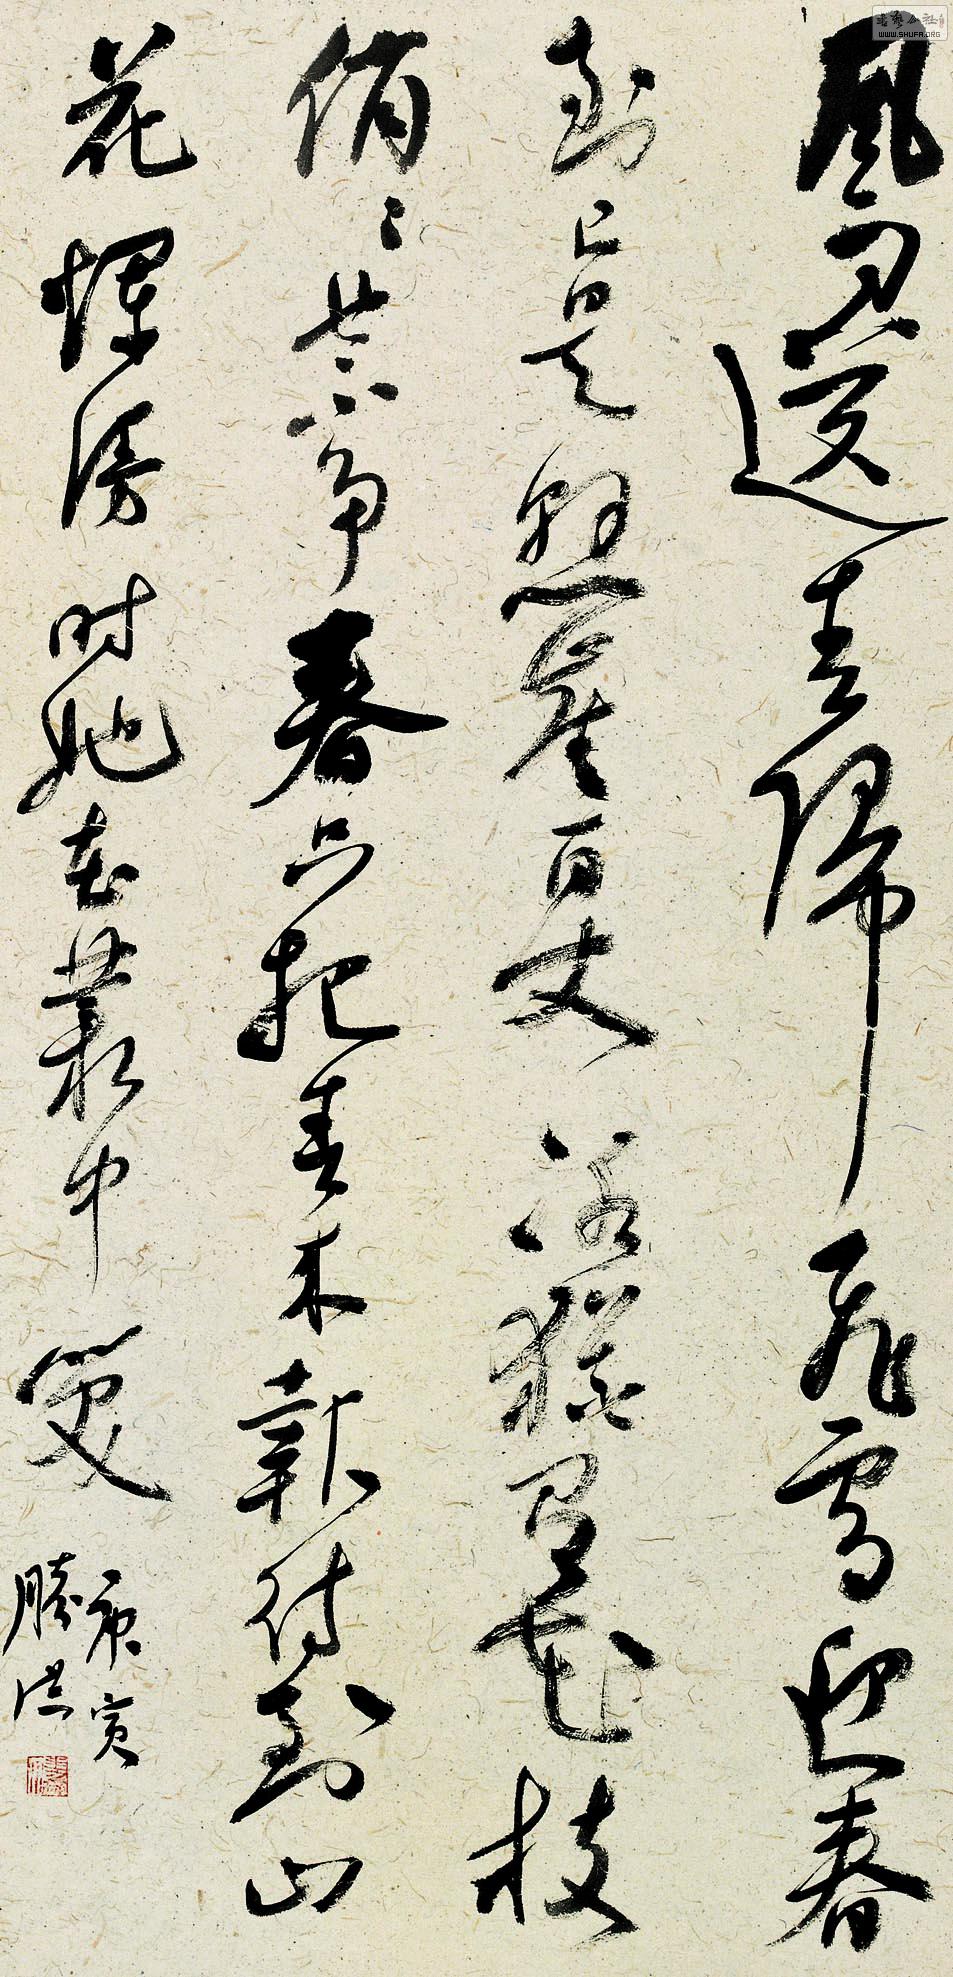 風雨送春歸飛雪迎春
到已是懸崖百丈冰猶有花枝
俏〻也不争春只把春来報待到山
花爛漫时她在叢中笑
庚寅
勝
書藝公社
WWW.SHUFA.ORG